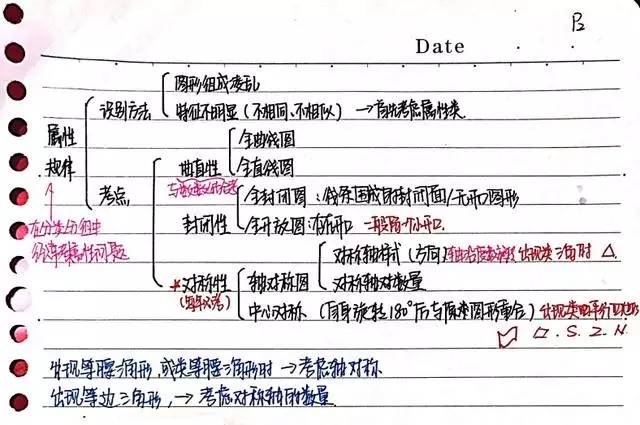 P₂
Date
图形组成凌乱
识别方法
特征不明显(不相同、不相似) →首先考虑属性类
属性
规律
全曲线图
曲直性
全直线图
考点
全封闭图:线条围成的封闭面/无开口图形
封闭性
全开放图:有开口 一般留一个小开口.
在分类分组中
经常考属性问题
对称轴样式(方向) 出现类三角时 △.
*对称性
轴对称图
对称轴对数量
(每年必考)
中心对称(自身旋转180°后与原来图形重合) 出现类平行四边形
▱.S.Z.N.
出现等腰三角形,或类等腰三角形时→考虑轴对称
出现等边三角形,→考虑对称轴的数量